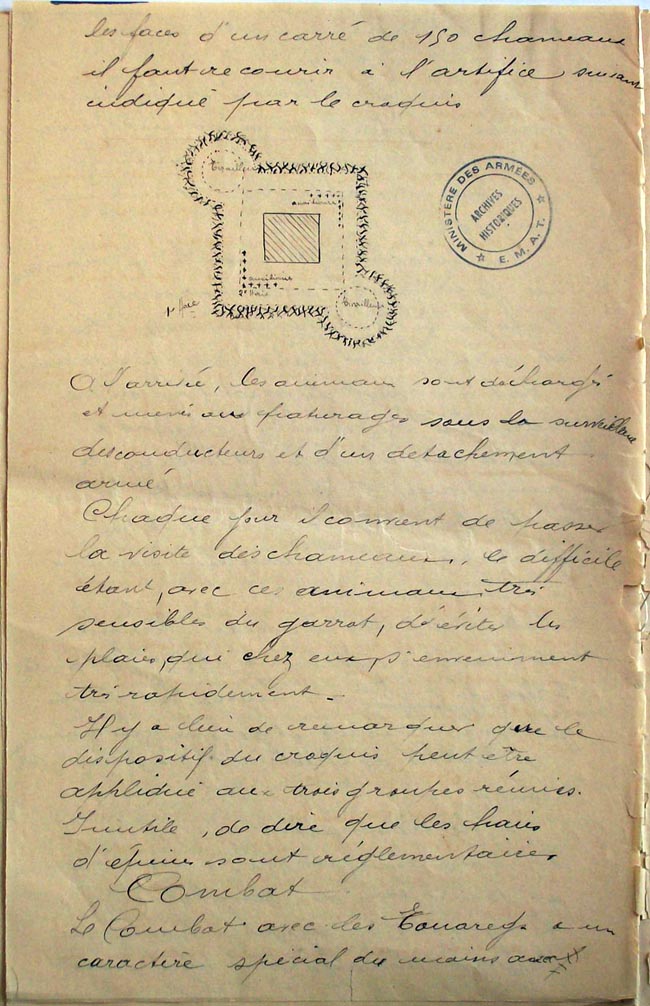 les faces d'un carré de 150 chameaux
il faut recourir à l'artifice suivant
indiqué par le croquis
Tirailleurs
auxiliaires
MINISTÈRE DES ARMÉES
ARCHIVES
HISTORIQUES
E. M. A. T.
auxiliaires
2e
1e face
Tirailleurs
A l'arrivée, les animaux sont déchargés
et menés aux paturages sous la surveillance
des conducteurs et d'un détachement
armé
Chaque jour il convient de passer
la visite des chameaux, le difficile
étant, avec ces animaux très
sensibles du garrot, d'éviter les
plaies, qui chez eux, s'enveniment
très rapidement.
Il y a lieu de remarquer que le
dispositif du croquis peut être
appliqué aux trois groupes réunis.
Inutile, de dire que les haies
d'épines sont réglementaires
Combat
Le Combat avec les Touaregs a un
caractère spécial du moins